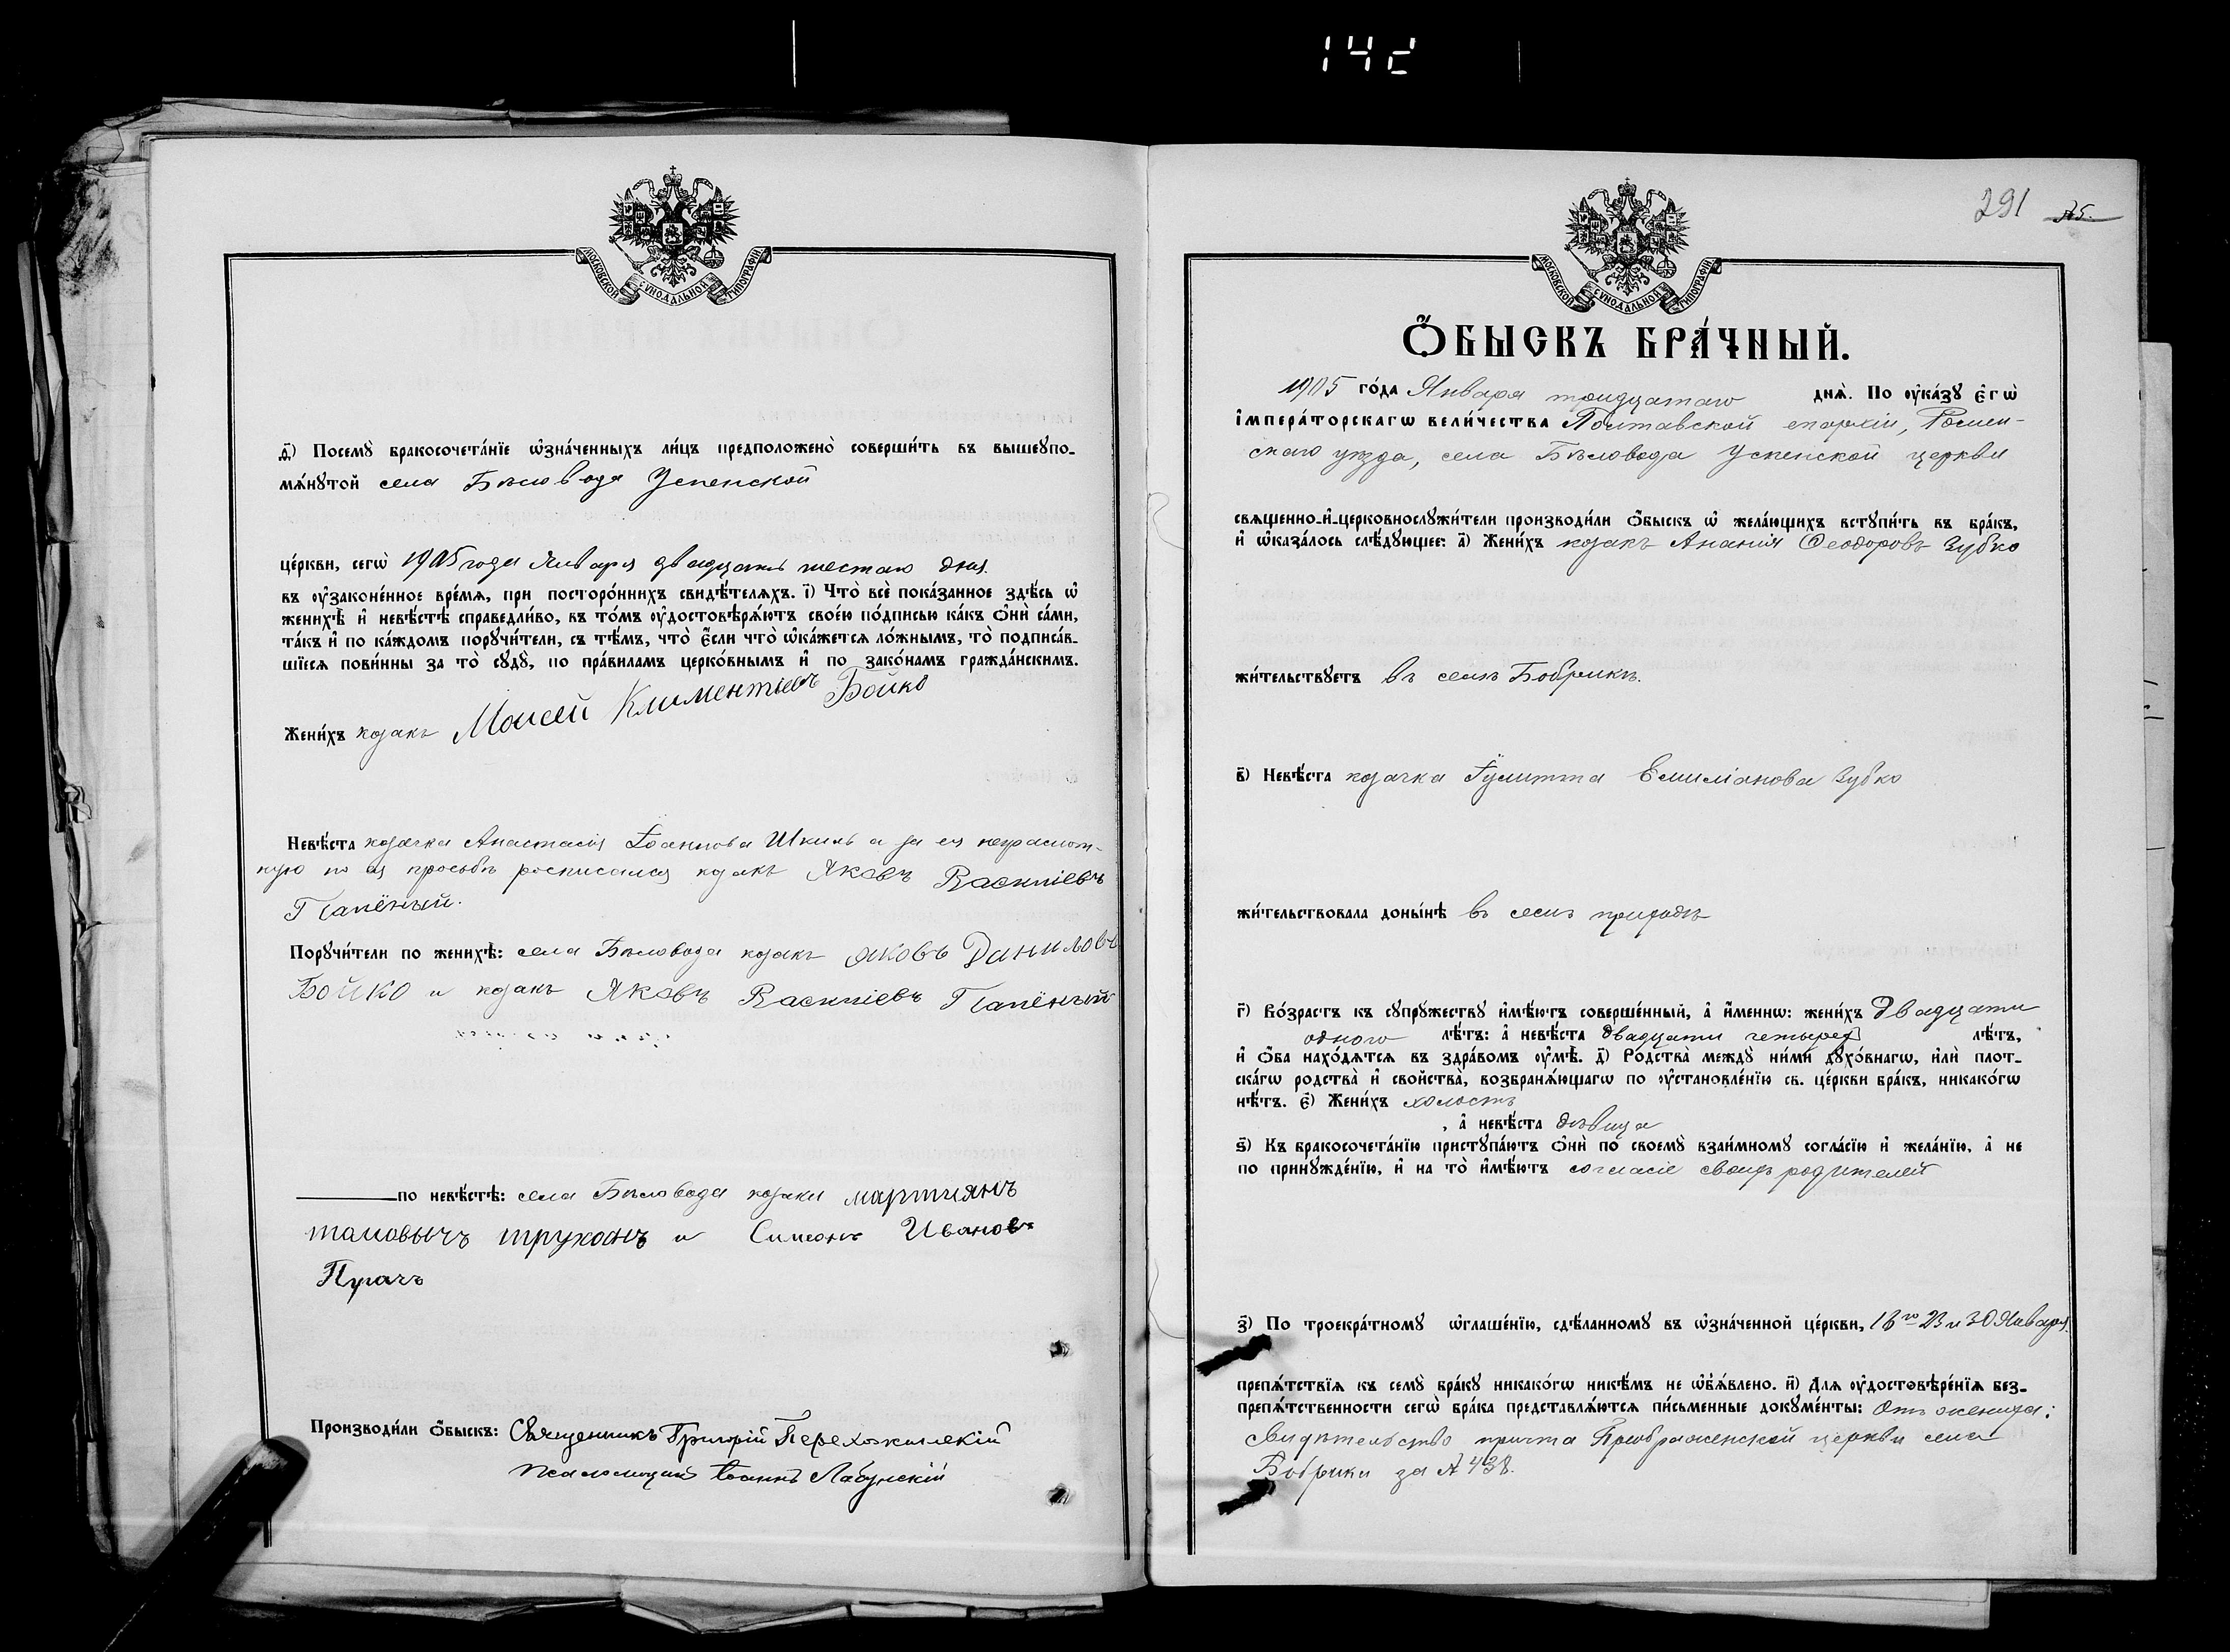 142
МОСКОВСКОЙ СѴНОДАЛЬНОЙ ТИПОГРАФІИ
ѳ҃) Посемꙋ̀ бракосочета́нїе ѡ҆зна́ченныхъ ли́цъ предположено̀ соверши́ть въ вышеꙋпо-
мѧ́нꙋтой села Бѣловода Успенской
це́ркви, сегѡ̀ 1905 года Января двадцать шестаго дня.
въ ᲂу҆законе́нное вре́мѧ, при посторо́ннихъ свидѣ́телѧхъ. і҃) Что̀ всѐ пока́занное здѣ́сь ѡ҆
женихѣ̀ и҆ невѣ́стѣ справедли́во, въ то́мъ ᲂу҆достовѣрѧ́ютъ свое́ю по́дписью ка́къ ѻ҆нѝ са́ми,
та́къ и҆ по ка́ждомъ порꙋчи́тели, съ тѣ́мъ, что̀ є҆́сли что̀ ѡ҆ка́жетсѧ ло́жнымъ, то̀ подписа́в-
шїесѧ пови́нны за то̀ сꙋдꙋ̀, по пра́виламъ церко́внымъ и҆ по зако́намъ гражда́нскимъ.
Жени́хъ козакъ Моисей Климентиевъ Бойко
Невѣ́ста козачка Анастасія Іоаннова Шкиль а за ея неграмот-
ную по ея просьбѣ росписался козакъ Яковъ Василіевъ
Порꙋчи́тели по женихѣ̀: села Бѣловода козакъ Яковъ Даниловъ
Бойко и козакъ Яковъ Василіевъ
по невѣ́стѣ: села Бѣловода козаки мартиянъ
трухонъ и Симеонъ Ивановъ
Пугачъ
Производи́ли ѻ҆́быскъ: Священникъ Григорій
Псаломщикъ Іоаннъ Лабунскій
291 75.
МОСКОВСКОЙ СѴНОДАЛЬНОЙ ТИПОГРАФІИ
Ѻ҆́БЫСКЪ БРА́ЧНЫЙ.
1905 го́да Января тридцатаго днѧ̀. По ᲂу҆ка́зꙋ є҆гѡ̀
і҆мпера́торскагѡ вели́чества Полтавской епархіи, Ромен-
скаго уѣзда, села Бѣловода Успенской церкви
свѧщенно-и҆-церковнослꙋжи́тели производи́ли ѻ҆́быскъ ѡ҆ жела́ющихъ встꙋпи́ть въ бра́къ,
и҆ ѡ҆каза́лось слѣ́дꙋющее: а҃) Жени́хъ козакъ Ананія Ѳеодоровъ Зубко
жи́тельствꙋетъ въ селѣ Бобрикѣ.
в҃) Невѣ́ста козачка Іулитта Емиліанова Зубко
жи́тельствовала доны́нѣ въ семъ приходѣ
г҃) Во́зрастъ къ сꙋпрꙋ́жествꙋ и҆мѣ́ютъ соверше́нный, а҆ и҆́меннѡ: жени́хъ двадцати
одного лѣ́тъ: а҆ невѣ́ста двадцати четырех лѣ́тъ,
и҆ ѻ҆́ба нахо́дѧтсѧ въ здра́вомъ ᲂу҆мѣ̀. д҃) Родства̀ междꙋ̀ ни́ми дꙋхо́внагѡ, и҆лѝ плот-
ска́гѡ родства̀ и҆ свойства̀, возбранѧ́ющагѡ по ᲂу҆становле́нїю св. це́ркви бра́къ, никако́гѡ
нѣ́тъ. є҃) Жени́хъ холостъ
, а҆ невѣ́ста дѣвица
ѕ҃) Къ бракосочета́нїю пристꙋпа́ютъ ѻ҆нѝ по своемꙋ̀ взаи́мномꙋ согла́сїю и҆ жела́нїю, а҆ не
по принꙋжде́нїю, и҆ на то̀ и҆мѣ́ютъ согласіе своихъ родителей
з҃) По троекра́тномꙋ ѡ҆глаше́нїю, сдѣ́ланномꙋ въ ѡ҆зна́ченной це́ркви, 16го 23 и 30 Января.
препѧ́тствїѧ къ семꙋ̀ бра́кꙋ никако́гѡ никѣ́мъ не ѡ҆б̾ѧ́влено. и҃) Длѧ ᲂу҆достовѣре́нїѧ без-
препѧ́тственности сегѡ̀ бра́ка представлѧ́ютсѧ пи́сьменные докꙋме́нты: Отъ жениха:
Свидѣтельство причта Преображенской церкви села
Бобрики за № 438.